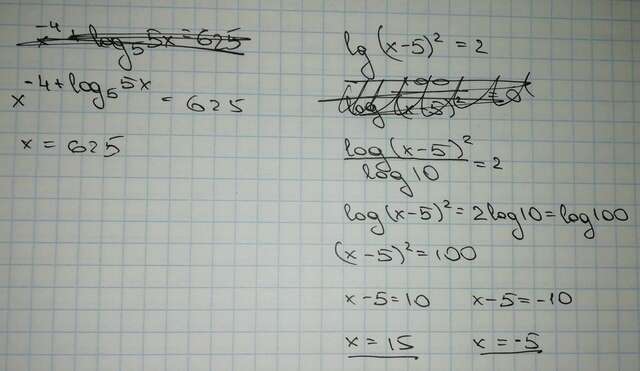 x⁻⁴ + log₅5x = 625
x^(-4+log₅5x) = 625
x = 625
lg(x-5)² = 2
log(x-5)²/log10 = 2
log(x-5)² = 2log10 = log100
(x-5)² = 100
x-5=10 x-5=-10
x = 15 x = -5